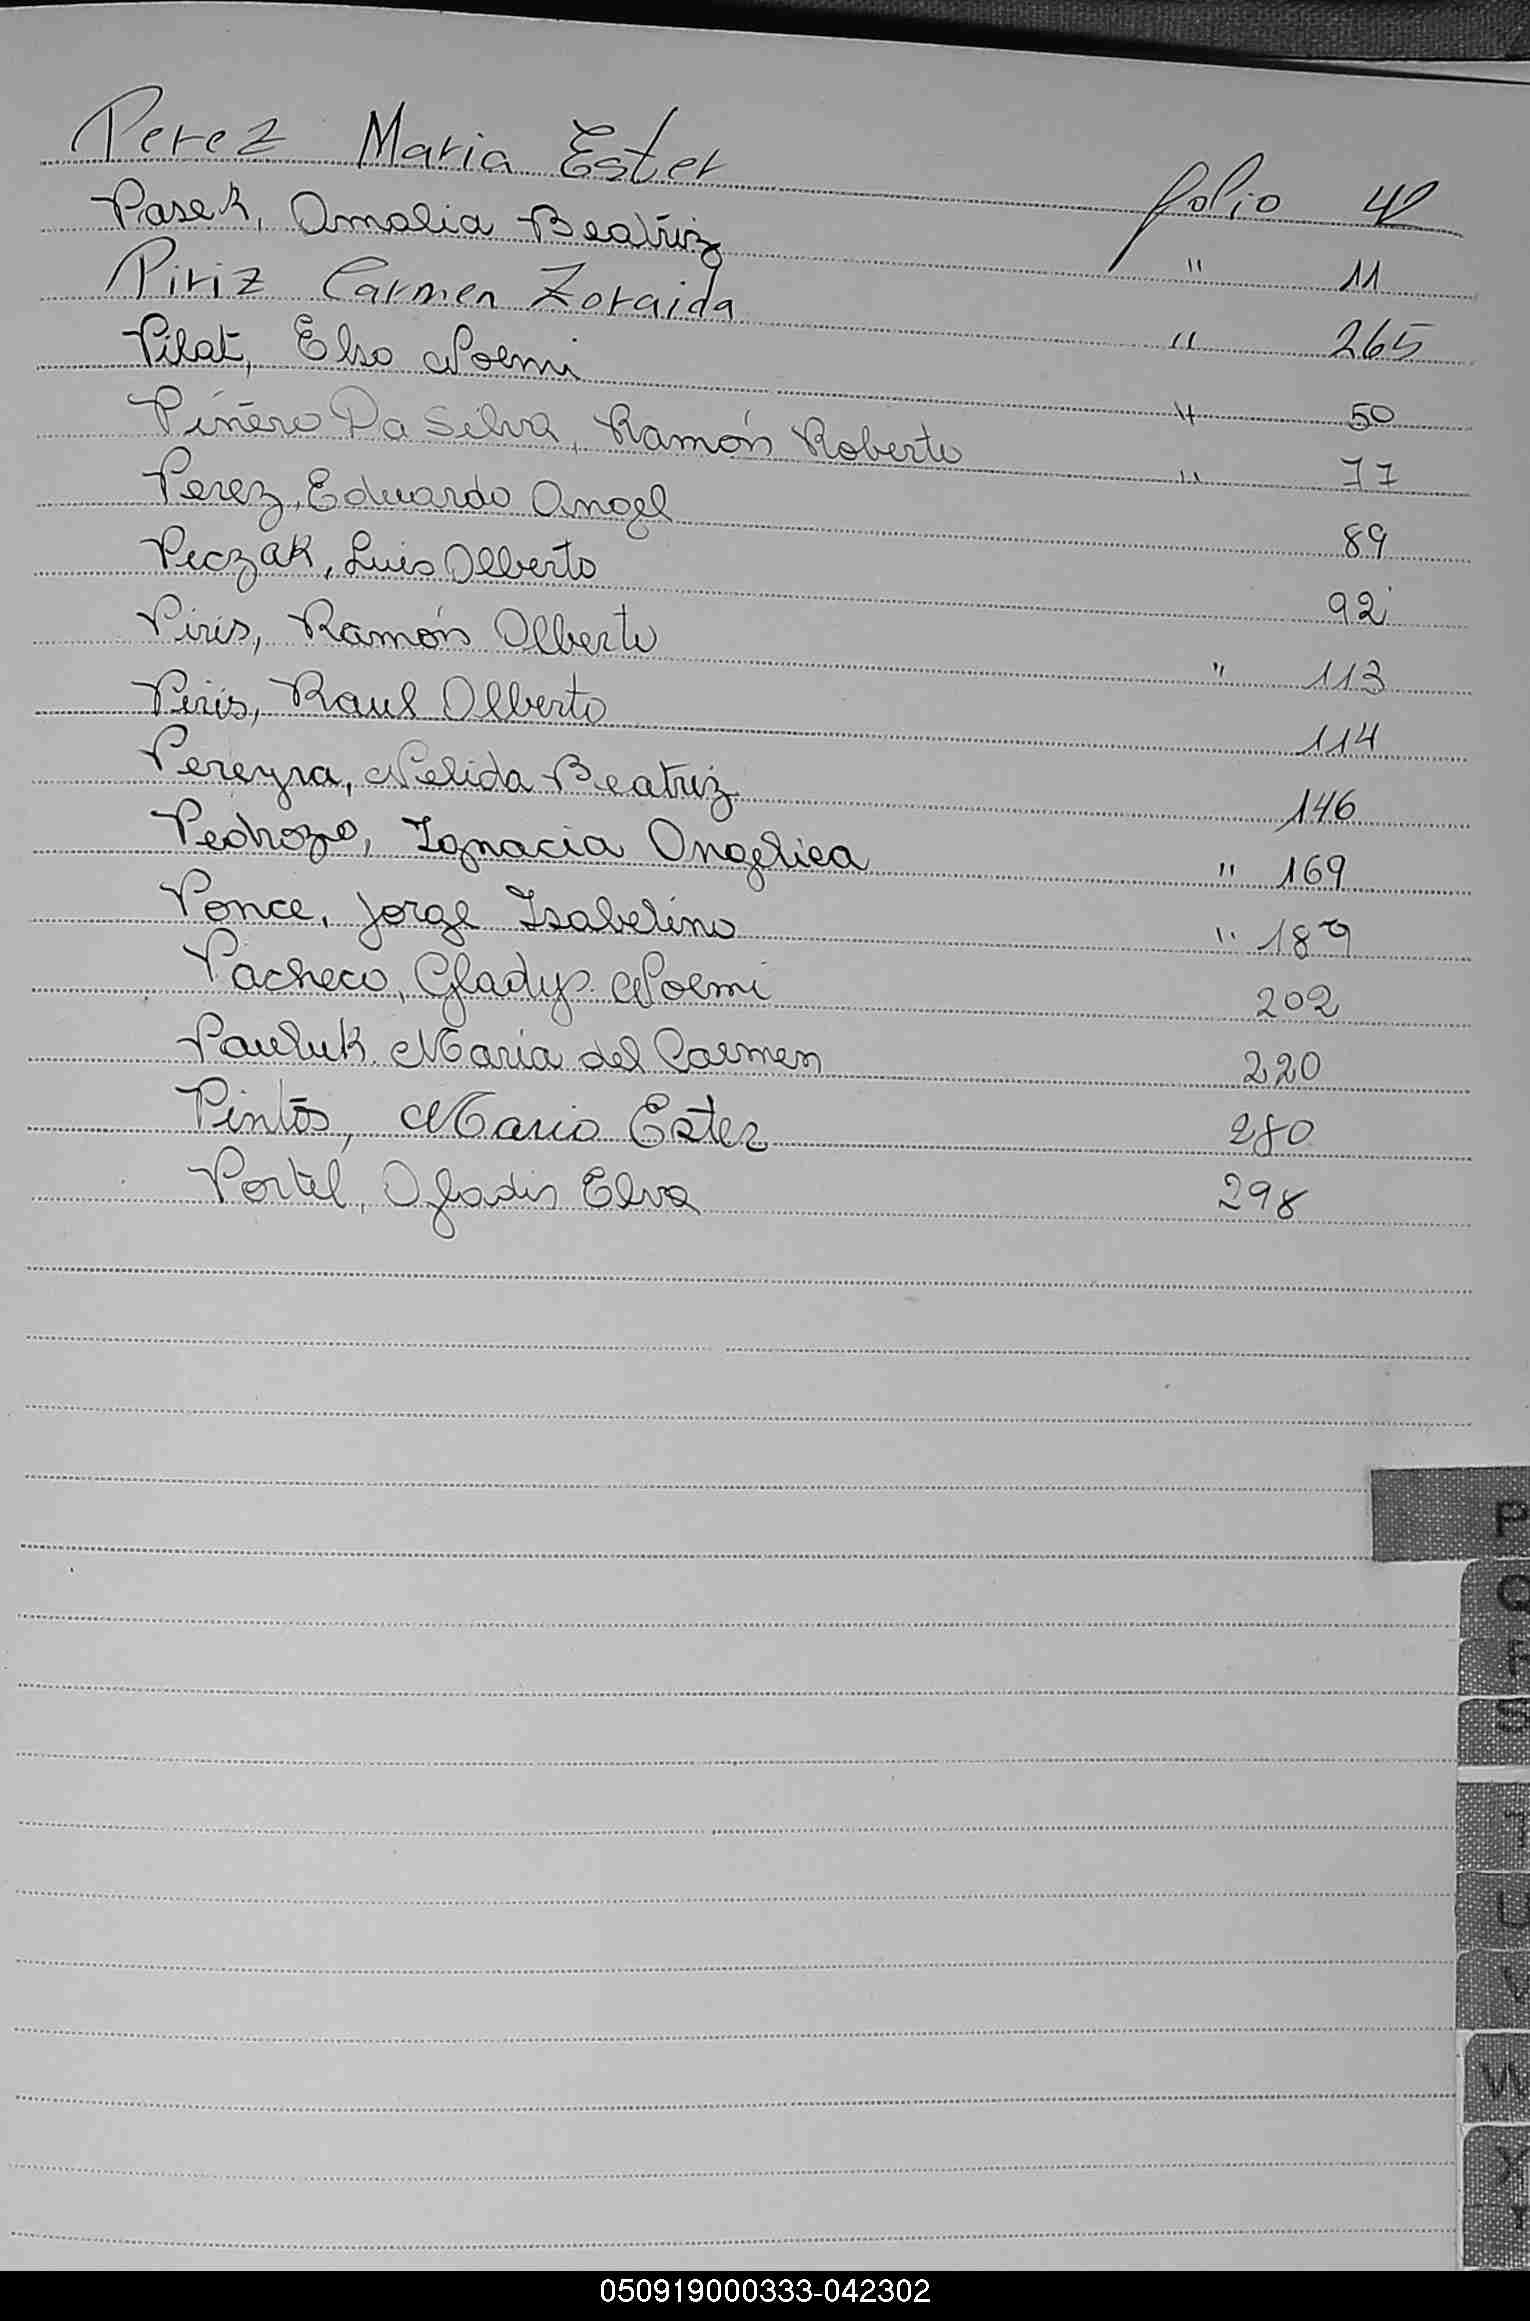 Perez Maria Ester folio 42
Pasek, Amalia Beatriz " 11
Piriz Carmen Zoraida " 265
Pilat, Elsa Noemi " 50
Piñero Da Silva, Ramón Roberto " 77
Perez, Eduardo Angel 89
Peczak, Luis Alberto 92
Piris, Ramón Alberto " 113
Piris, Raul Alberto 114
Pereyra, Nelida Beatriz 146
Pedrozo, Ignacia Angelica " 169
Ponce, Jorge Isabelino " 189
Pacheco, Gladys Noemi 202
Pauluk Maria del Carmen 220
Pintos, Maria Ester 280
Portel, Gladis Elva 298
P
Q
S
T
U
V
W
X
050919000333-042302